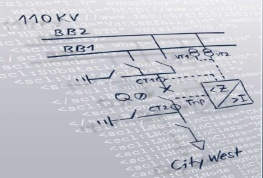 110KV
BB2
BB1
VT1
VT2
CT1
<Z
>I
Q0
CT2
Trip
City West